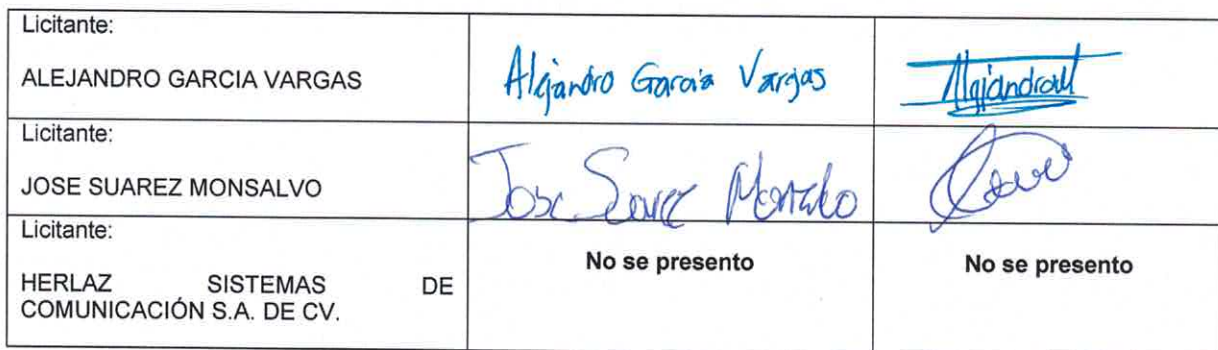 Licitante:
ALEJANDRO GARCIA VARGAS
Alejandro Garcia Vargas
Licitante:
JOSE SUAREZ MONSALVO
Jose Suarez
Licitante:
HERLAZ SISTEMAS DE
COMUNICACIÓN S.A. DE CV.
No se presento
No se presento